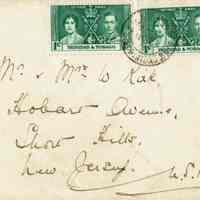 TRINIDAD & TOBAGO
TRINIDAD & TOBAGO
1c
1c
Mr. & Mrs W. Kae
Hobart Avenue,
Short Hills,
New Jersey.
U.S.